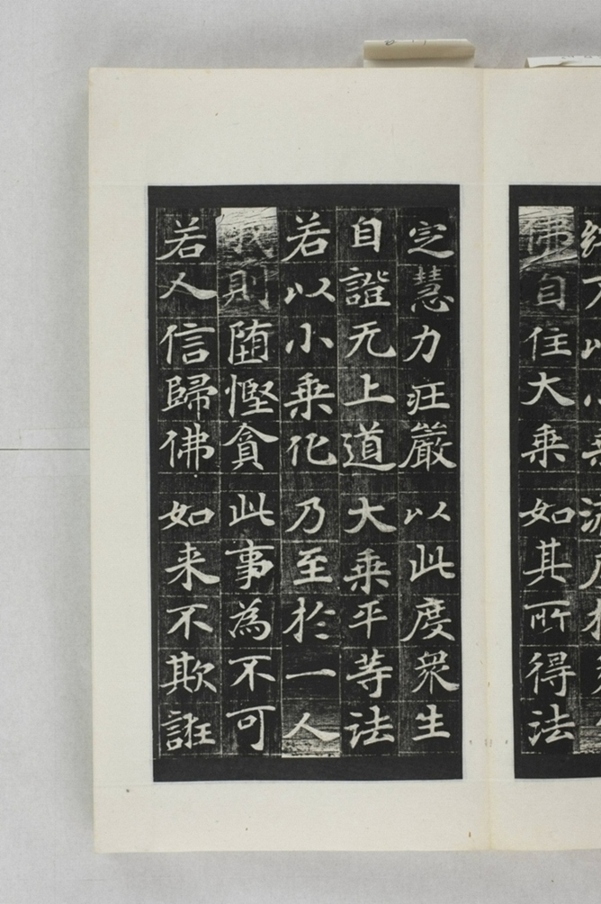 佛自住大乘 如其所得法
定慧力莊嚴 以此度衆生
自證无上道 大乘平等法
若以小乘化 乃至於一人
我則堕慳貪 此事為不可
若人信歸佛 如来不欺誑